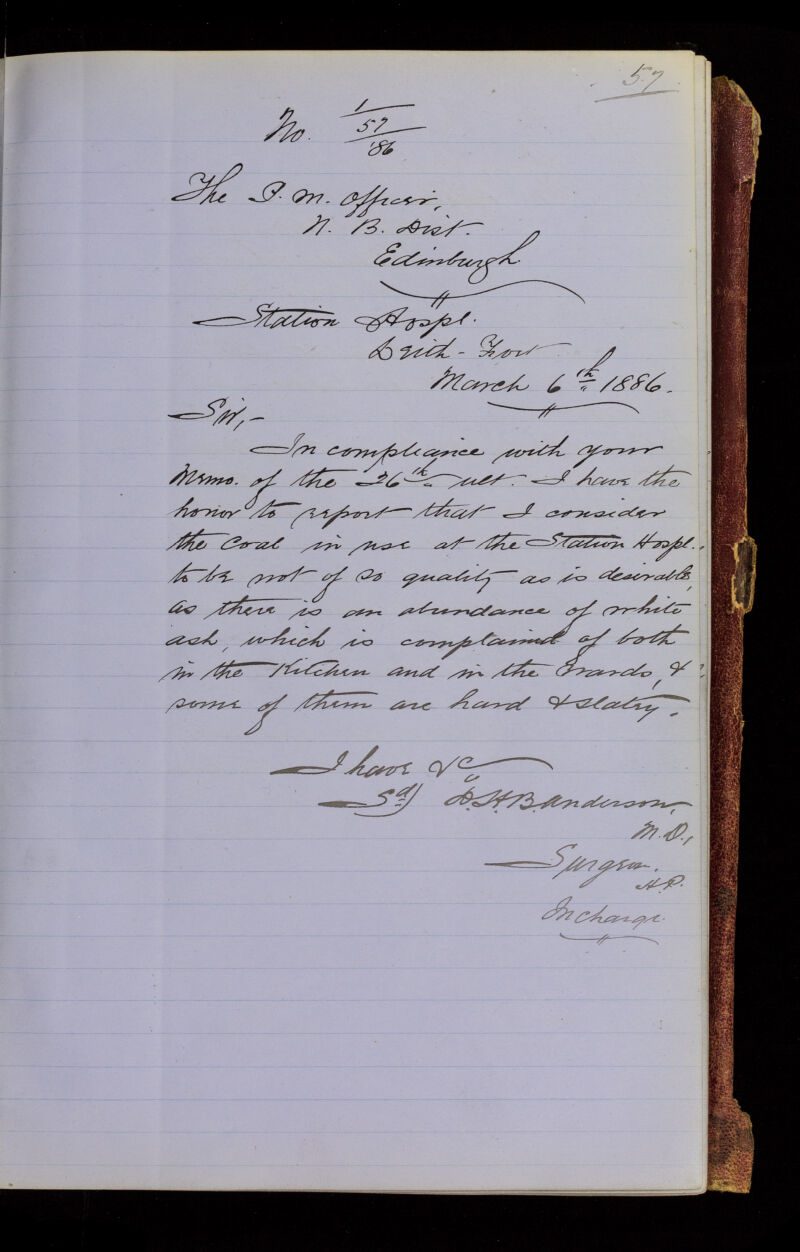 57
No. 1/57/'86
The P. M. Officer,
N. B. Dist.
Edinburgh.
Station Hospl.
Leith-Fort
March 6th 1886.
Sir,-
In compliance with your
Memo. of the 26th ult. I have the
honor to report that I consider
the Coal in use at the Station Hospl.
to be not of so quality as is desirable,
as there is an abundance of white
ash, which is complained of both
in the Kitchen and in the Wards, &
some of them are hard & slatey.
I have &c
Sd) D.H.B. Anderson,
M.D.,
Surgeon.
H.P.
In charge.